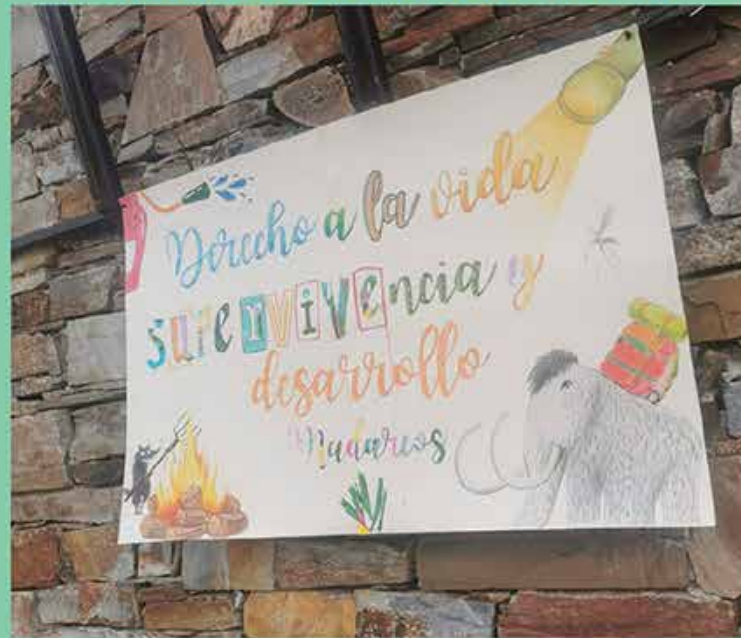 Derecho a la vida
supervivencia y
desarrollo
Madarcos